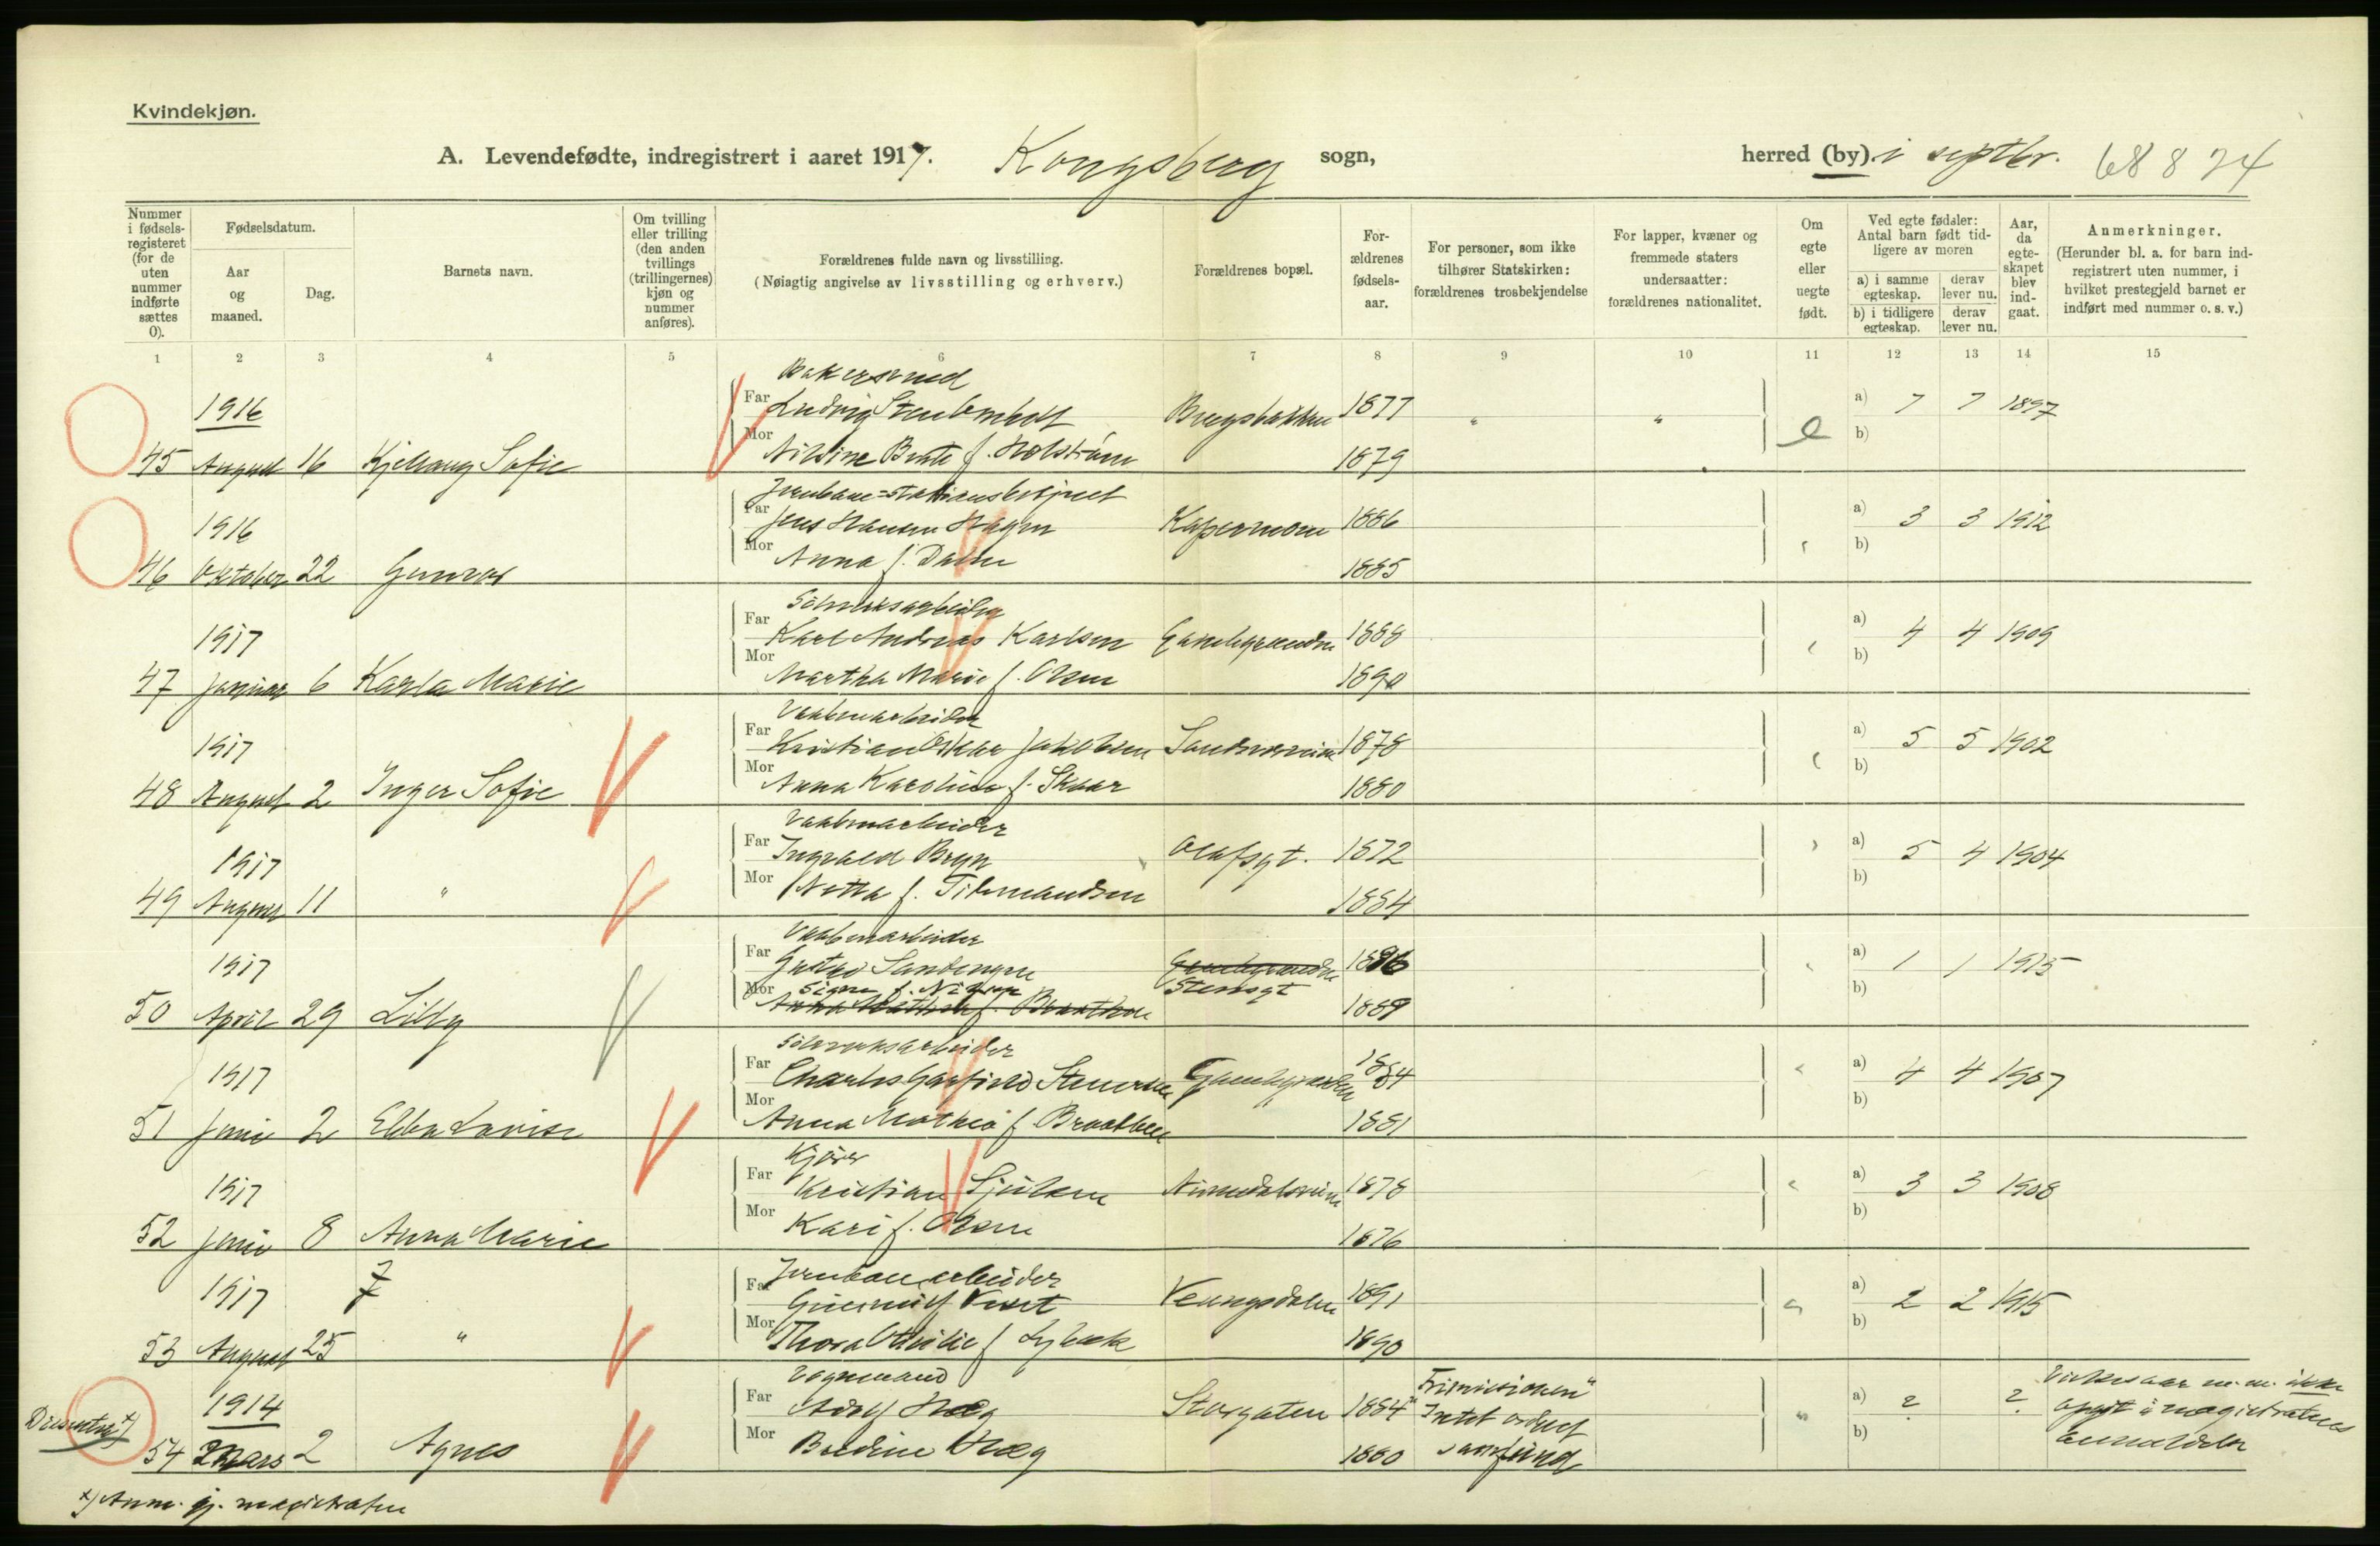 Kvindekjøn.
A. Levendefødte, indregistrert i aaret 1917. Kongsberg sogn, herred (by). i septbr. 68 8 74
Nummer i fødselsregisteret (for de uten nummer indførte sættes 0).
Fødselsdatum.
Aar og maaned.
Dag.
Barnets navn.
Om tvilling eller trilling (den anden tvillings (trillingernes) kjøn og nummer anføres).
Forældrenes fulde navn og livsstilling.
(Nøiagtig angivelse av livsstilling og erhverv.)
Forældrenes bopæl.
Forældrenes fødselsaar.
For personer, som ikke tilhører Statskirken: forældrenes trosbekjendelse
For lapper, kvæner og fremmede staters undersaatter: forældrenes nationalitet.
Om egte eller uegte født.
Ved egte fødsler: Antal barn født tidligere av moren
a) i samme egteskap. derav lever nu.
b) i tidligere egteskap. derav lever nu.
Aar, da egteskapet blev indgaat.
Anmerkninger.
(Herunder bl. a. for barn indregistrert uten nummer, i hvilket prestegjeld barnet er indført med nummer o. s. v.)
1 2 3 4 5 6 7 8 9 10 11 12 13 14 15
Bakersvend
1916 Far Ludvig 1877 " " e a) 7 7 1897
Mor b)
45 August 16 Kjellaug Sofie f. Holstrøm 1879
Jernbane=stationsbetjent
1916 Far Jens Hansen Hagen Kapermoen 1886 a) 3 3 1912
Mor b)
46 Oktober 22 Gunvor Anna f. Dalen 1885
Sölvverksarbeider
1917 Far Karl Andreas Karlsen Gamlegrænden 1888 a) 4 4 1909
Mor b)
47 Januar 6 Karla Marie Martha Marie f. Olsen 1890
Vaabenarbeider
1917 Far Kristian Oskar Jakobsen Sandsværveien 1878 a) 5 5 1902
Mor b)
48 August 2 Inger Sofie Anna Karoline f. Skaar 1880
Vaabenarbeider
1917 Far Ingvald Bryn Olafsgt. 1872 a) 5 4 1904
Mor b)
49 August 11 " Netta f. Tidemandsen 1884
Vaabenarbeider
1917 Far Gustav Sandengen Gamlegrænden 1886 a) 1 1 1915
Mor Signe f. Stensgt b)
50 April 29 Lilly Anna Mathea f. Braathen 1889
Sölvverksarbeider
1917 Far Charles Garfield Gamlegrænden 1884 a) 4 4 1907
Mor b)
51 Juni 2 Ebba Lovise Anna Mathea f. Braathen 1881
Kjører
1917 Far Kristian Numedalsveien 1878 a) 3 3 1908
Mor b)
52 Juni 8 Anna Marie Kari f. Olsen 1876
Jernbanearbeider
1917 Far Veungsdalen 1891 a) 2 2 1915
Mor b)
53 August 25 " Thora Othilie f. Lybeck 1890
Vognmand
1914 Far Adolf Hæg Storgaten 1884 "Frimissionen" " a) ? ? ikke
Dissenter x) Mor Intet ordnet b) opgit i magistratens
54 Mars 2 Agnes Hæg 1880 samfund anmeldelse
x) Anm. gj. magistraten